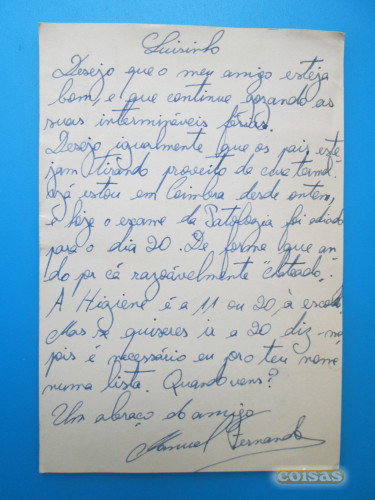 Luisinho
Desejo que o meu amigo esteja
bom, e que continue gosando as
suas intermináveis férias.
Desejo igualmente que os pais este-
jam tirando proveito da cura termal.
cá estou em Coimbra desde ontem,
e hoje o exame da Patologia foi adiado
para o dia 20. De forma que an-
do por cá razoávelmente "chateado".
A Higiene é a 11 ou 20, à escolha.
Mas se quiseres ir a 20 diz-me
pois é necessário eu pro teu nome
numa lista. Quando vens?
Um abraço do amigo
Manuel Fernando
coisas